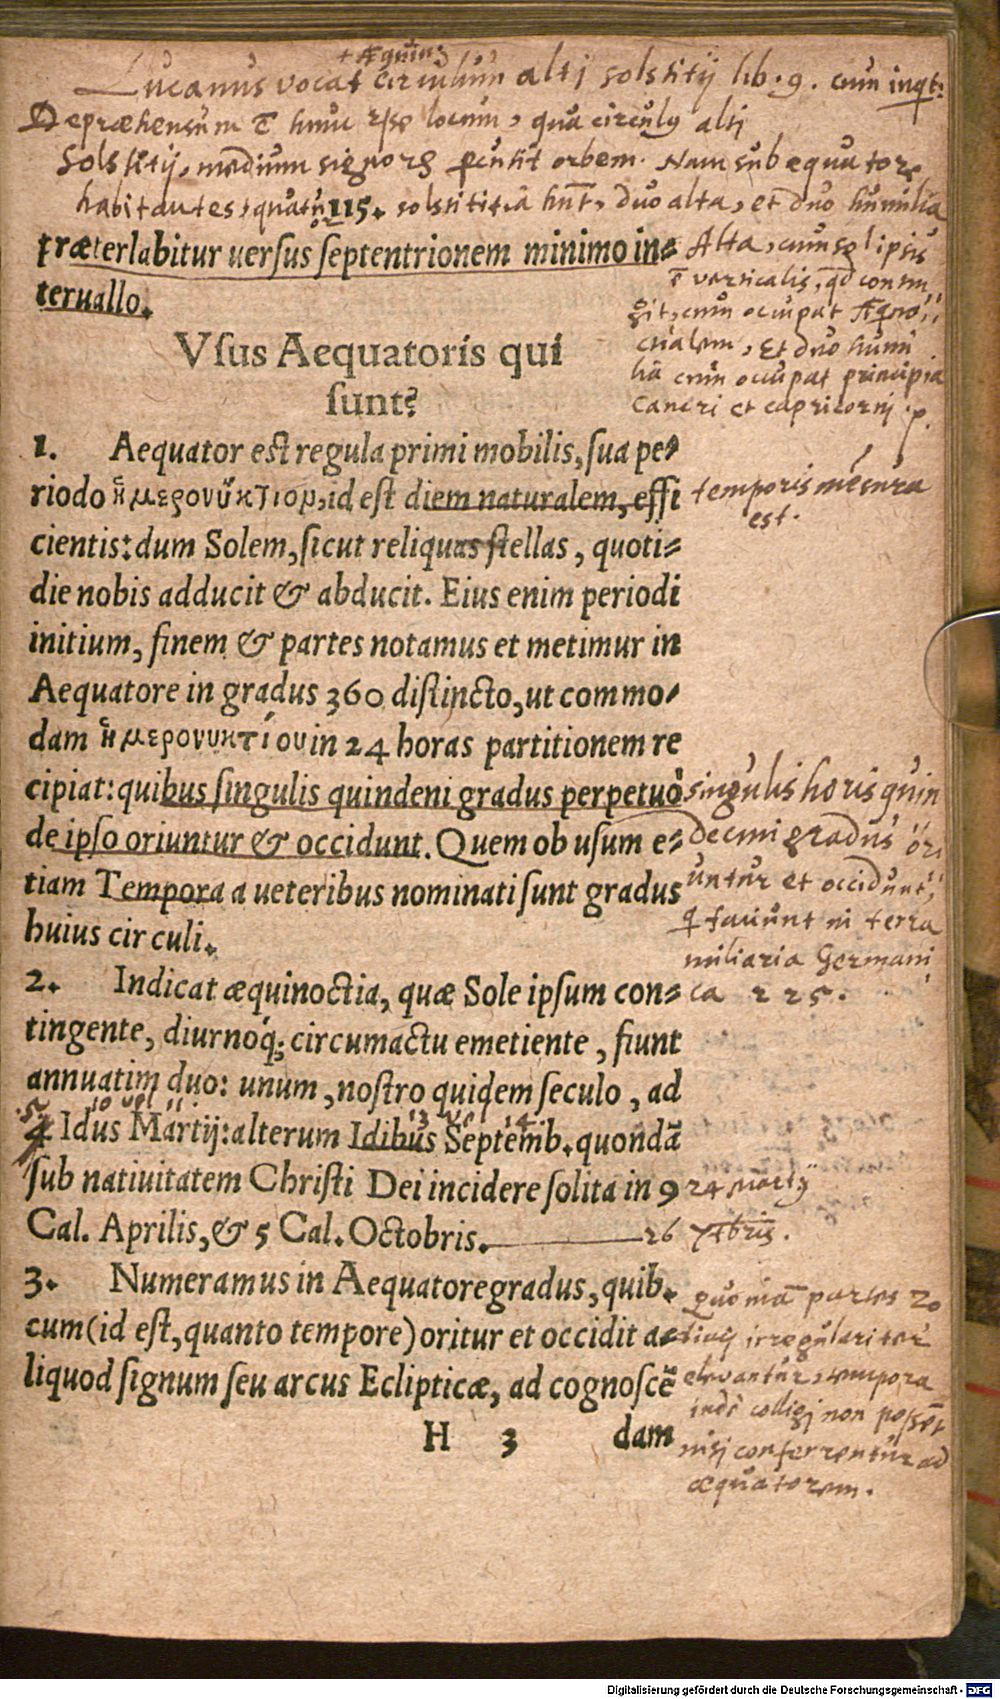 + Æquin:
Lucanus vocat circulum alti solstitij lib. 9. cum inqt:
Depræhensum ē hunc esse locum, qua circulꝰ alti
Solstitij, medium signorꝝ percutit orbem. Nam sub equatore
habitantes, quatuor solstitia hn̄t, duo alta, et duo humilia
115.
præterlabitur uersus septentrionem minimo in=
teruallo.
Alta, cum sol ipsis
ē verticalis, qd contin
git, cum occupat Æqno
ctialem, Et duo humi
lia cum occupat principia
Cancri et capricorni .p.
Vsus Aequatoris qui
sunt?
1. Aequator est regula primi mobilis, sua pe=
riodo ἡμερονύκτιον, id est diem naturalem, effi
cientis: dum Solem, sicut reliquas stellas, quoti=
die nobis adducit & abducit. Eius enim periodi
initium, finem & partes notamus et metimur in
Aequatore in gradus 360 distincto, ut commo=
dam ἡμερονυκτίου in 24 horas partitionem re
cipiat: quibus singulis quindeni gradus perpetuò
de ipso oriuntur & occidunt. Quem ob usum e=
tiam Tempora a ueteribus nominati sunt gradus
huius circuli.
temporis mēsura
est.
singulis horis quin
decim gradus ori
untur et occidunt,
q faciunt in terra
miliaria Germani
ca 225.
2. Indicat æquinoctia, quæ Sole ipsum con=
tingente, diurnoq́; circumactu emetiente, fiunt
annuatim duo: unum, nostro quidem seculo, ad
5 10 vel 11
4 Idus Martij: alterum Idibus Septemb. quondā
13 vel 14
sub natiuitatem Christi Dei incidere solita in 9
Cal. Aprilis, & 5 Cal. Octobris.
24 Martij
26 7tbris.
3. Numeramus in Aequatore gradus, quib.
cum (id est, quanto tempore) oritur et occidit a=
liquod signum seu arcus Eclipticæ, ad cognoscē
H 3 dam
Quoniā partes Zo
diaci irregulariter
elevantur, tempora
inde colligi non possēt
nisi conferrentur ad
æquatorem.
Digitalisierung gefördert durch die Deutsche Forschungsgemeinschaft - DFG